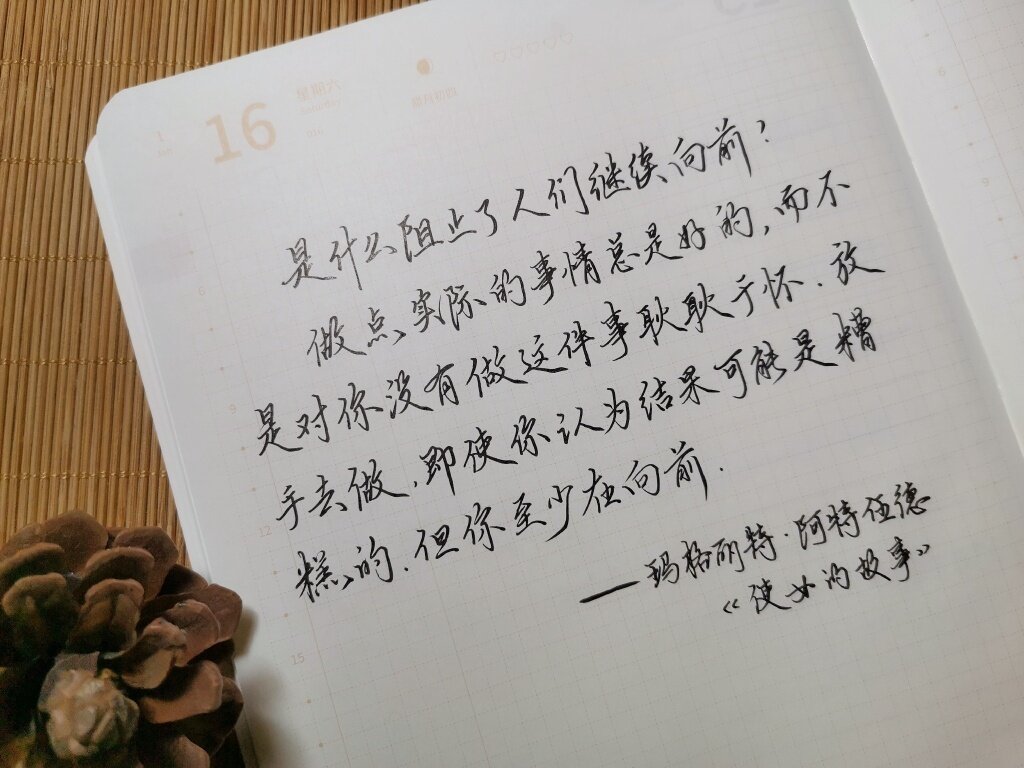 1
Jan
16
星期六
Saturday
016
腊月初四
是什么阻止了人们继续向前?
做点实际的事情总是好的,而不
是对你没有做这件事耿耿于怀.放
手去做,即使你认为结果可能是糟
糕的.但你至少在向前.
——玛格丽特·阿特伍德
《使女的故事》
6
9
12
15
6
9